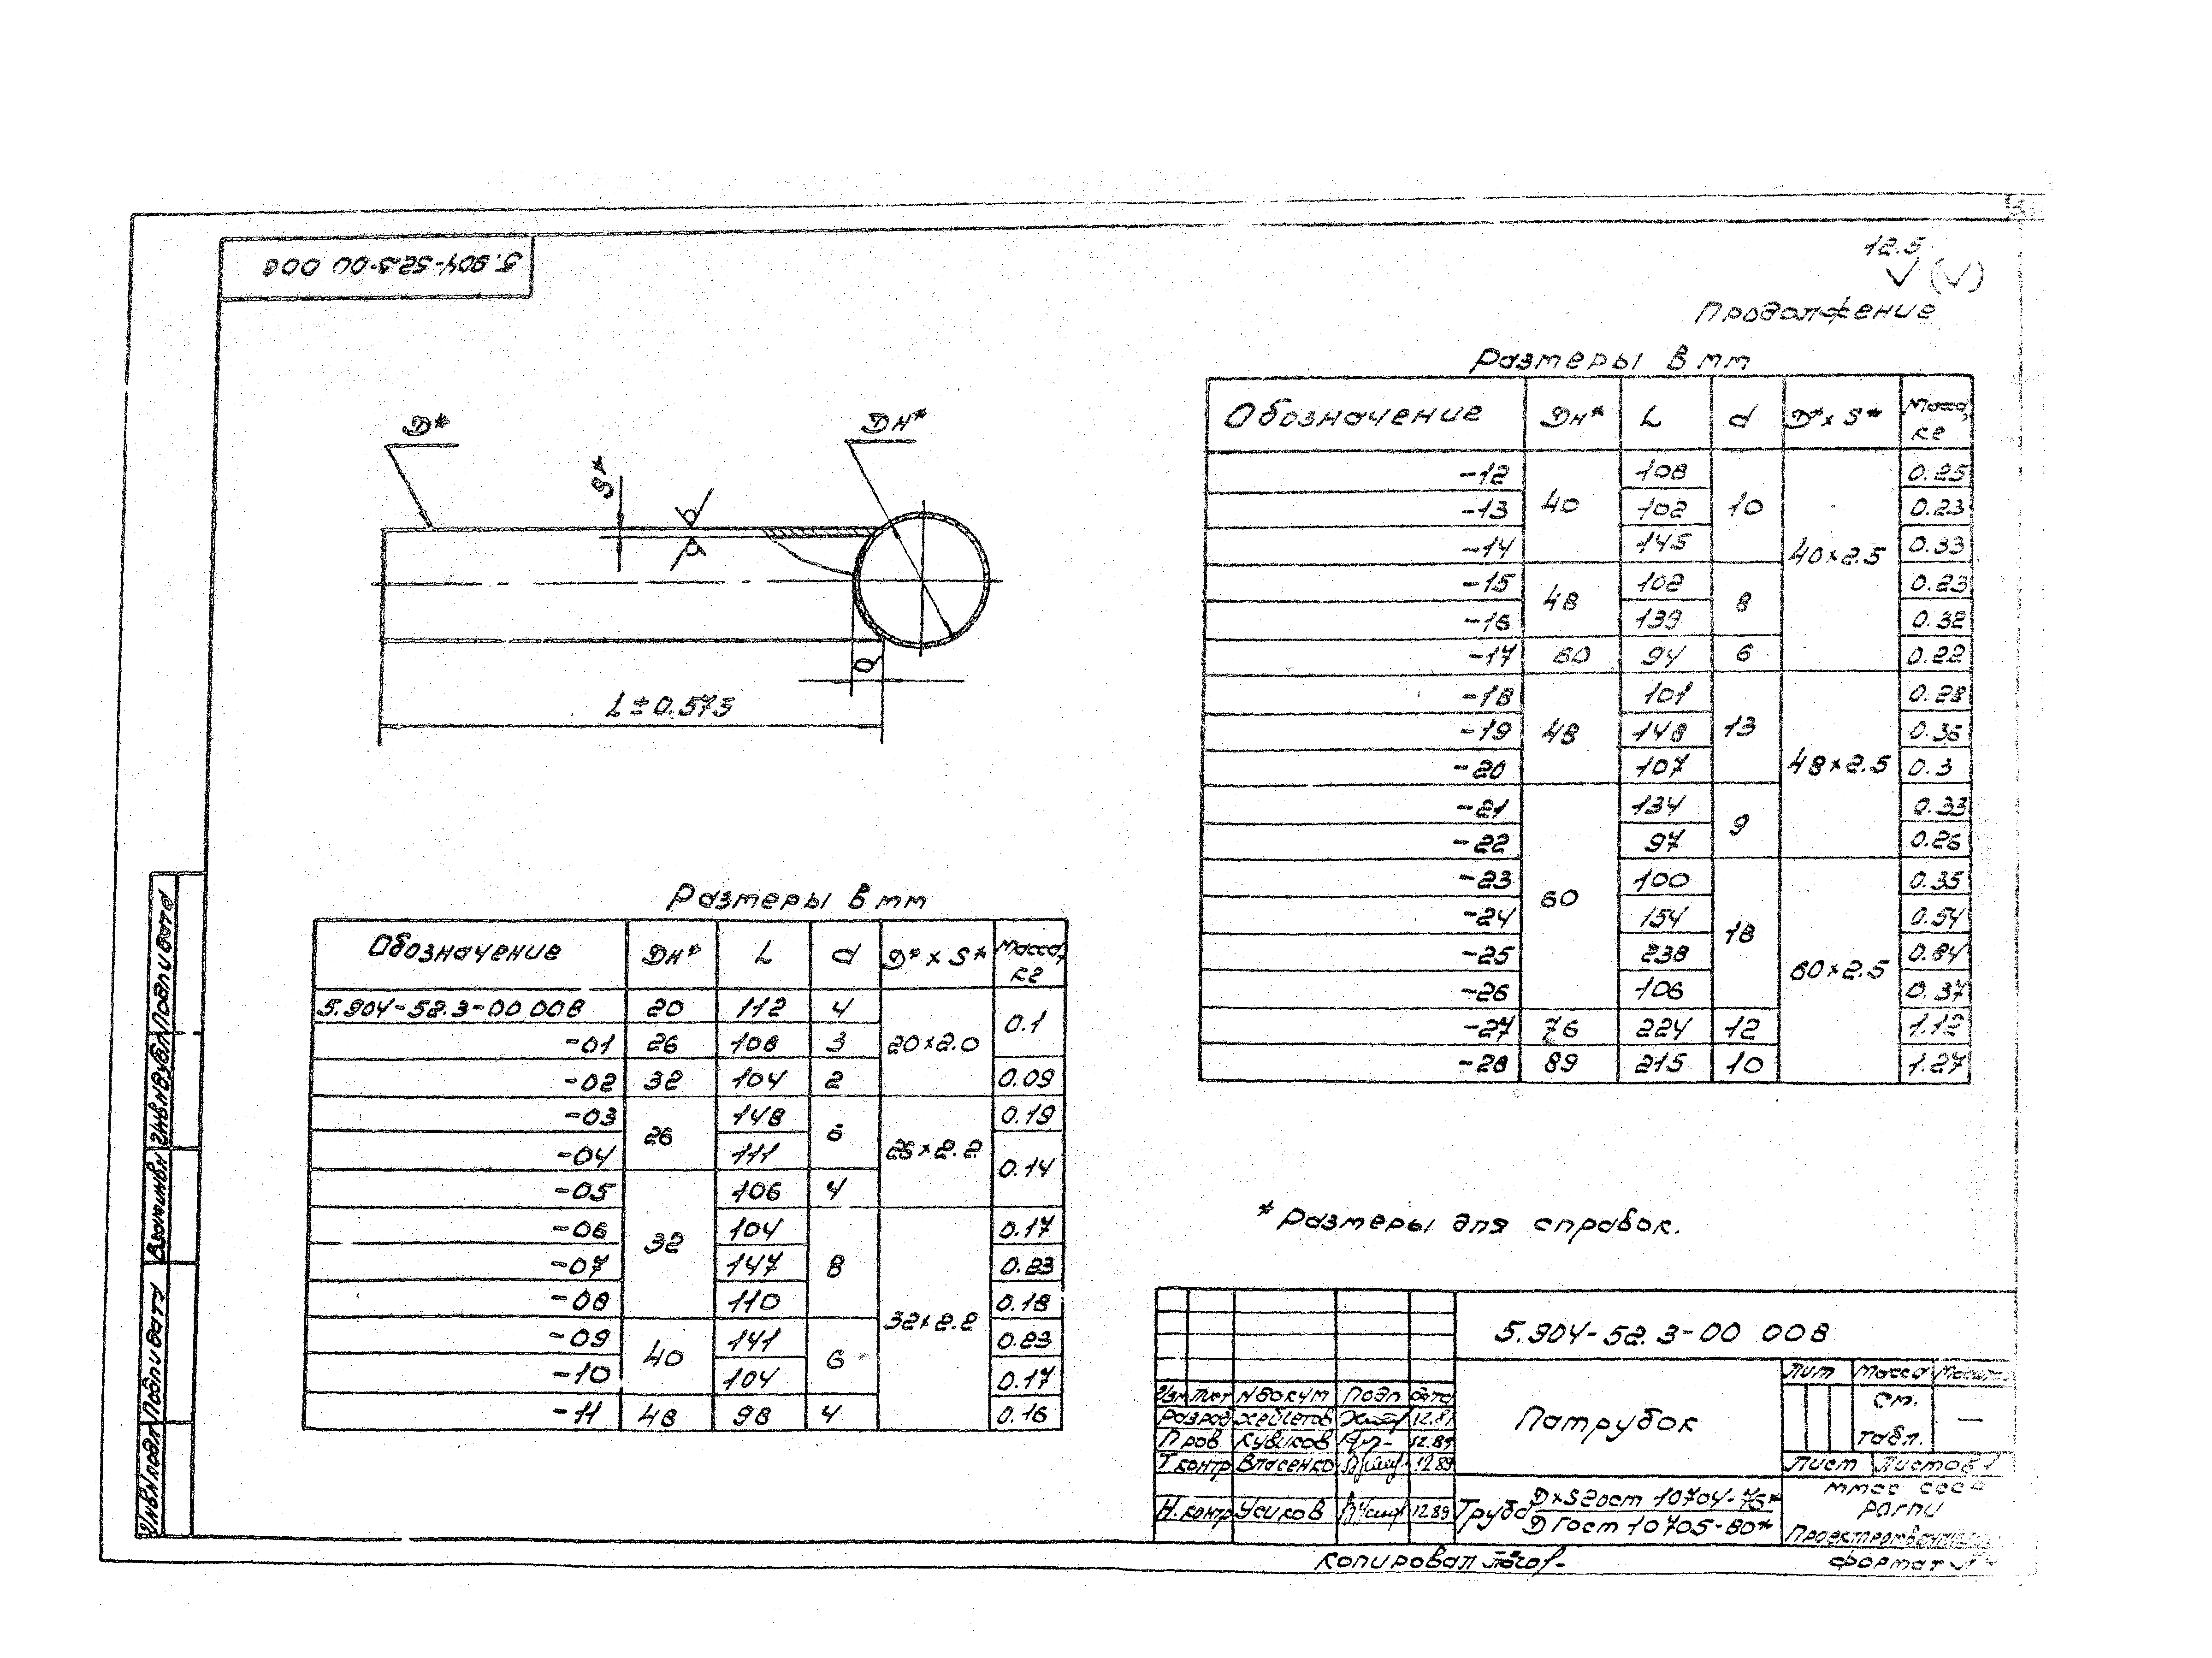 5.904-52.3-00 008
12.5
(√)
Продолжение
Д*
Дн*
S*
a
L±0.575
Размеры в мм
Обозначение Дн* L d Д*×S* Масса, кг
5.904-52.3-00 008 20 112 4 20×2.0 0.1
-01 26 108 3
-02 32 104 2 0.09
-03 26 148 6 26×2.2 0.19
-04 111 0.14
-05 32 106 4
-06 104 8 32×2.2 0.17
-07 147 0.23
-08 110 0.18
-09 40 141 6 0.23
-10 104 0.17
-11 48 98 4 0.16
Размеры в мм
Обозначение Дн* L d Д*×S* Масса, кг
-12 40 108 10 40×2.5 0.25
-13 102 0.23
-14 145 0.33
-15 48 102 8 0.23
-16 139 0.32
-17 60 94 6 0.22
-18 48 101 13 48×2.5 0.28
-19 148 0.36
-20 107 0.3
-21 60 134 9 0.33
-22 97 0.26
-23 100 18 60×2.5 0.35
-24 154 0.54
-25 238 0.84
-26 106 0.37
-27 76 224 12 1.12
-28 89 215 10 1.27
* Размеры для справок.
5.904-52.3-00 008
Изм Лист N докум Подп Дата
Разраб 12.89
Пров 12.89
Т.контр Власенко 12.89
Н.контр Усиков 12.89
Патрубок
Лит Масса
См. табл. —
Лист Листов 1
Труба Д×S Гост 10704-76*
Д Гост 10705-80*
ММСС СССР
Копировал
Формат
Инв N подл Подп и дата Взам инв N Инв N дубл Подп и дата